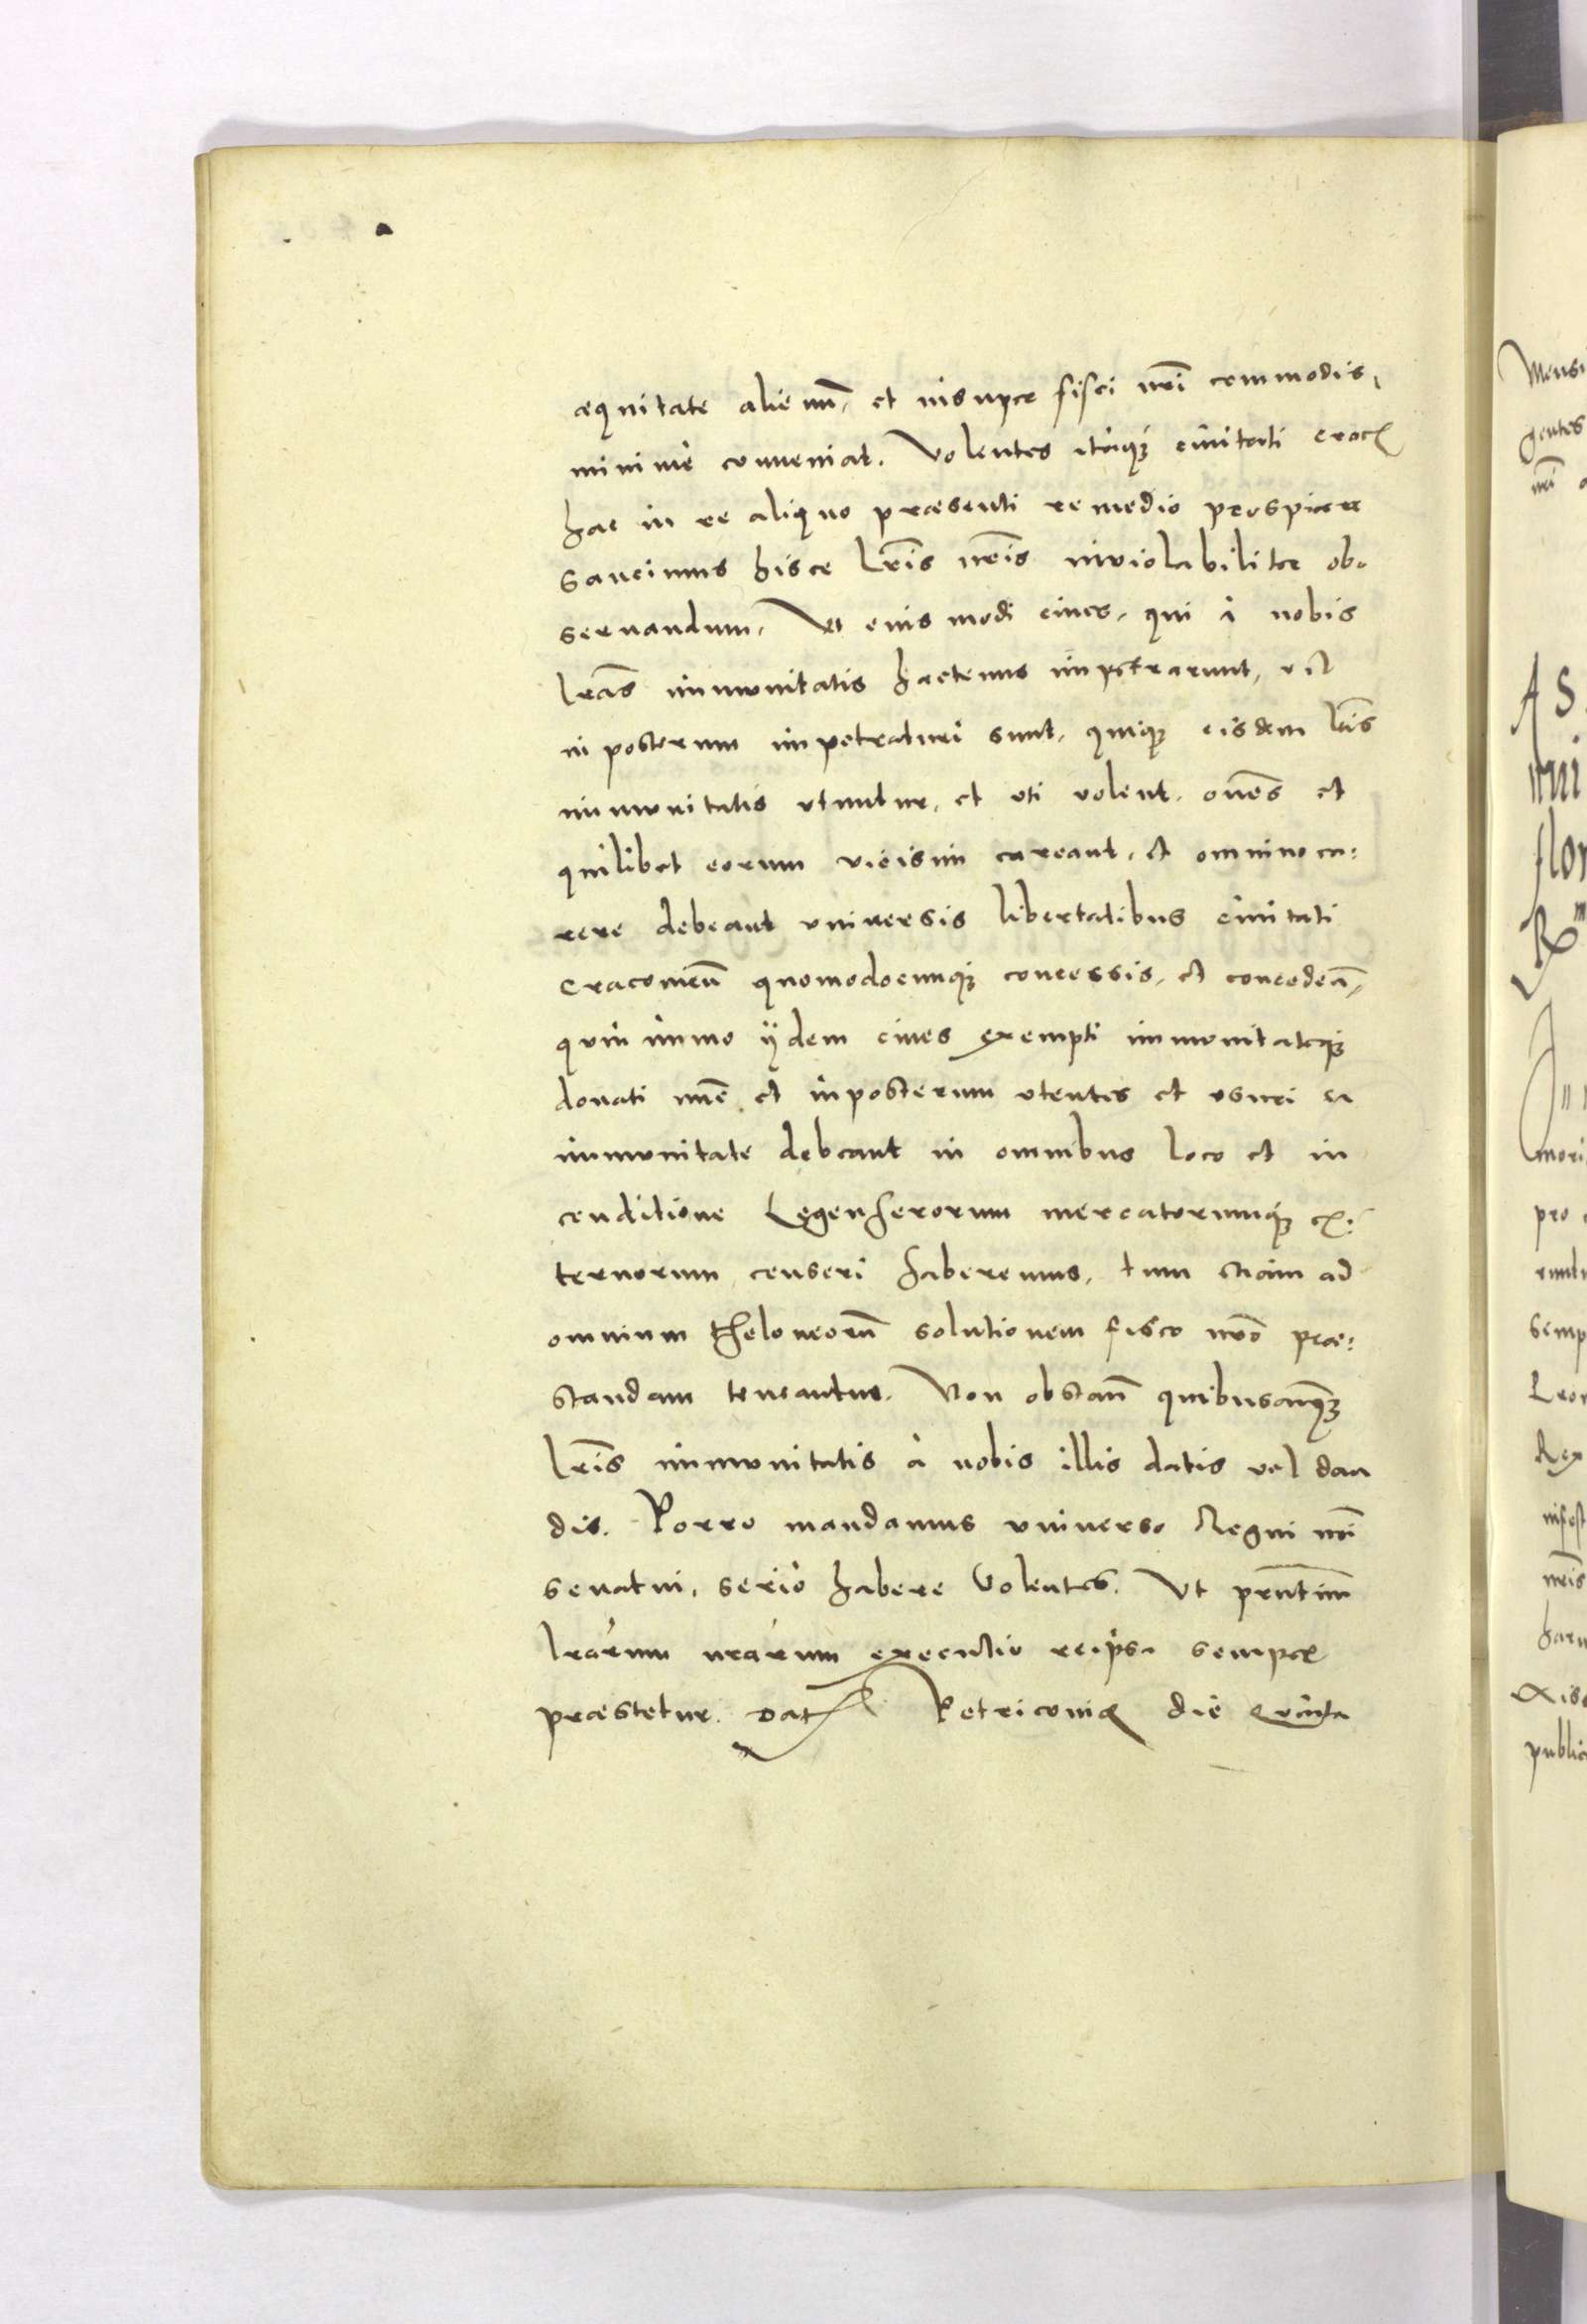 æquitate alienũ, et insuper fisci nr̃i commodis,
minime conueniat. Volentes itaq; ciuitati Crac̃
hac in re aliquo præsenti remedio prospicere
sancimus hisce lr̃is nr̃is inviolabiliter ob-
seruandum. Vt eius modi ciues, qui à nobis
lrãs immunitatis hactenus impetrarunt, vel
in posterum impetraturi sunt, quiq; eisdem lr̃is
immunitatis vtuntur, et vti volent, omẽs et
quilibet eorum vicissim careant, et omnino ca:
rere debeant vniuersis libertatibus ciuitati
Cracouieñ quomodocunq; concessis, et concedeñ,
quin immo ÿdem ciues exempti immunitateq;
donati nũc et in posterum vtentes et vsuri ea
immunitate debeant in omnibus loco et in
conditione Legenferorum mercatorumq; ex:
ternorum censeri haberemus, tum etiam ad
omnium theloneorũ solutionem fisco nr̃o præ:
standam teneantur. Non obstañ quibuscunq;
lr̃is immunitatis à nobis illis datis vel dan
dis. Porro mandamus vniuerso Regni nr̃i
senatui, serio habere Volentes. Vt pr̃ntium
lrarum nrarum executio reipsa semper
præstetur. Dat̃ Petricouiæ die Quinta
Mensi
gentes
nr̃i
AS
mi
flor
mori
pro
semp
Rex
nr̃is
publi